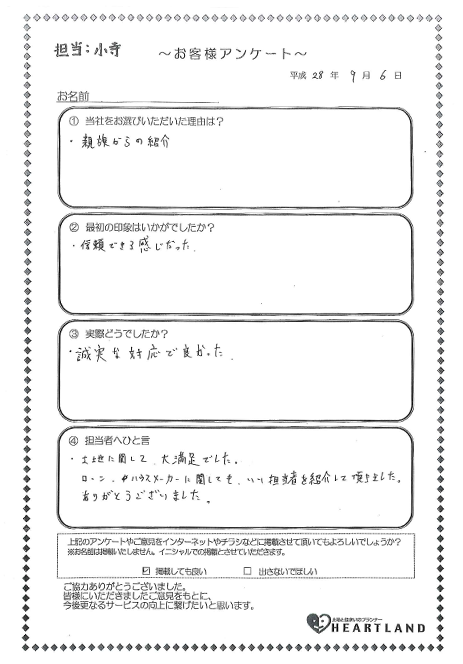 担当:小寺
～お客様アンケート～
平成 28 年 9 月 6 日
お名前
① 当社をお選びいただいた理由は?
・親族からの紹介
② 最初の印象はいかがでしたか?
・信頼できる感じだった.
③ 実際どうでしたか?
・誠実な対応で良かった.
④ 担当者へひと言
・土地に関して、大満足でした。
ローン、ハウスメーカーに関しても、いい担当者を紹介して頂きました。
ありがとうございました。
上記のアンケートやご意見をインターネットやチラシなどに掲載させて頂いてもよろしいでしょうか?
※お名前は掲載いたしません。イニシャルでの掲載とさせていただきます。
☑ 掲載しても良い □ 出さないでほしい
ご協力ありがとうございました。
皆様にいただきましたご意見をもとに、
今後更なるサービスの向上に繋げたいと思います。
土地と住まいのプランナー
HEARTLAND